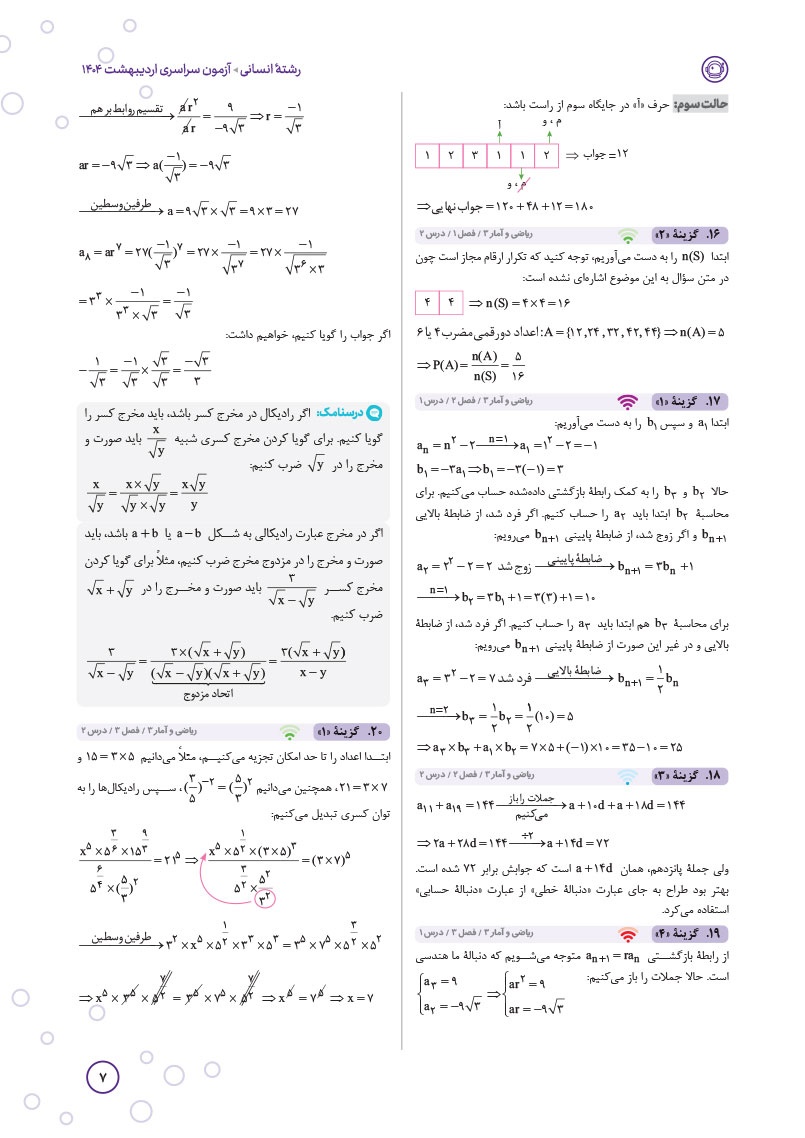 رشتهٔ انسانی • آزمون سراسری اردیبهشت ۱۴۰۴
حالت سوم: حرف «آ» در جایگاه سوم از راست باشد:
آ م ، و
۱ ۲ ۳ ۱ ۱ ۲ ⇒ جواب = ۱۲
م ، و
⇒ جواب نهایی = ۱۲۰ + ۴۸ + ۱۲ = ۱۸۰
۱۶. گزینهٔ «۲» ریاضی و آمار ۳ / فصل ۱ / درس ۲
ابتدا n(S) را به دست می‌آوریم، توجه کنید که تکرار ارقام مجاز است چون
در متن سؤال به این موضوع اشاره‌ای نشده است:
۴ ۴ ⇒ n(S) = ۴ × ۴ = ۱۶
اعداد دورقمی مضرب ۴ یا ۶ : A = {۱۲, ۲۴, ۳۲, ۴۲, ۴۴} ⇒ n(A) = ۵
⇒ P(A) = n(A)/n(S) = ۵/۱۶
۱۷. گزینهٔ «۱» ریاضی و آمار ۳ / فصل ۲ / درس ۱
ابتدا a₁ و سپس b₁ را به دست می‌آوریم:
aₙ = n² − ۲ —n=۱→ a₁ = ۱² − ۲ = −۱
b₁ = −۳a₁ ⇒ b₁ = −۳(−۱) = ۳
حالا b₂ و b₃ را به کمک رابطهٔ بازگشتی داده‌شده حساب می‌کنیم. برای
محاسبهٔ b₂ ابتدا باید a₂ را حساب کنیم. اگر فرد شد، از ضابطهٔ بالایی
bₙ₊₁ و اگر زوج شد، از ضابطهٔ پایینی bₙ₊₁ می‌رویم:
a₂ = ۲² − ۲ = ۲ زوج شد —ضابطهٔ پایینی→ bₙ₊₁ = ۳bₙ + ۱
—n=۱→ b₂ = ۳b₁ + ۱ = ۳(۳) + ۱ = ۱۰
برای محاسبهٔ b₃ هم ابتدا باید a₃ را حساب کنیم. اگر فرد شد، از ضابطهٔ
بالایی و در غیر این صورت از ضابطهٔ پایینی bₙ₊₁ می‌رویم:
a₃ = ۳² − ۲ = ۷ فرد شد —ضابطهٔ بالایی→ bₙ₊₁ = ۱/۲ bₙ
—n=۲→ b₃ = ۱/۲ b₂ = ۱/۲ (۱۰) = ۵
⇒ a₃ × b₃ + a₁ × b₂ = ۷ × ۵ + (−۱) × ۱۰ = ۳۵ − ۱۰ = ۲۵
۱۸. گزینهٔ «۳» ریاضی و آمار ۳ / فصل ۲ / درس ۲
a₁₁ + a₁₉ = ۱۴۴ —جملات را باز می‌کنیم→ a + ۱۰d + a + ۱۸d = ۱۴۴
⇒ ۲a + ۲۸d = ۱۴۴ —÷۲→ a + ۱۴d = ۷۲
ولی جملهٔ پانزدهم، همان a + ۱۴d است که جوابش برابر ۷۲ شده است.
بهتر بود طراح به جای عبارت «دنبالهٔ خطی» از عبارت «دنبالهٔ حسابی»
استفاده می‌کرد.
۱۹. گزینهٔ «۴» ریاضی و آمار ۳ / فصل ۳ / درس ۱
از رابطهٔ بازگشتی aₙ₊₁ = raₙ متوجه می‌شویم که دنبالهٔ ما هندسی
است. حالا جملات را باز می‌کنیم:
{a₃ = ۹ , a₂ = −۹√۳ ⇒ {ar² = ۹ , ar = −۹√۳
—تقسیم روابط بر هم→ ar²/ar = ۹/−۹√۳ ⇒ r = −۱/√۳
ar = −۹√۳ ⇒ a(−۱/√۳) = −۹√۳
—طرفین وسطین→ a = ۹√۳ × √۳ = ۹ × ۳ = ۲۷
a₈ = ar⁷ = ۲۷(−۱/√۳)⁷ = ۲۷ × −۱/√۳⁷ = ۲۷ × −۱/√(۳⁶ × ۳)
= ۳³ × −۱/(۳³ × √۳) = −۱/√۳
اگر جواب را گویا کنیم، خواهیم داشت:
−۱/√۳ = −۱/√۳ × √۳/√۳ = −√۳/۳
درسنامک: اگر رادیکال در مخرج کسر باشد، باید مخرج کسر را
گویا کنیم. برای گویا کردن مخرج کسری شبیه x/√y باید صورت و
مخرج را در √y ضرب کنیم:
x/√y = x×√y/√y×√y = x√y/y
اگر در مخرج عبارت رادیکالی به شکل a − b یا a + b باشد، باید
صورت و مخرج را در مزدوج مخرج ضرب کنیم، مثلاً برای گویا کردن
مخرج کسر ۳/(√x − √y) باید صورت و مخرج را در √x + √y
ضرب کنیم.
۳/(√x − √y) = ۳×(√x + √y)/(√x − √y)(√x + √y) = ۳(√x + √y)/(x − y)
اتحاد مزدوج
۲۰. گزینهٔ «۱» ریاضی و آمار ۳ / فصل ۳ / درس ۲
ابتدا اعداد را تا حد امکان تجزیه می‌کنیم، مثلاً می‌دانیم ۱۵ = ۳ × ۵ و
۲۱ = ۳ × ۷، همچنین می‌دانیم (۳/۵)⁻² = (۵/۳)²، سپس رادیکال‌ها را به
توان کسری تبدیل می‌کنیم:
(x⁵ × ۵^(۳/۶) × ۱۵^(۹/۳))/(۵^(۶/۴) × (۵/۳)²) = ۲۱⁵ ⇒ (x⁵ × ۵^(۱/۲) × (۳×۵)³)/(۵^(۳/۲) × ۵²/۳²) = (۳×۷)⁵
—طرفین وسطین→ ۳² × x⁵ × ۵^(۱/۲) × ۳³ × ۵³ = ۳⁵ × ۷⁵ × ۵^(۳/۲) × ۵²
⇒ x⁵ × ۳⁵ × ۵^(۷/۲) = ۳⁵ × ۷⁵ × ۵^(۷/۲) ⇒ x⁵ = ۷⁵ ⇒ x = ۷
۷